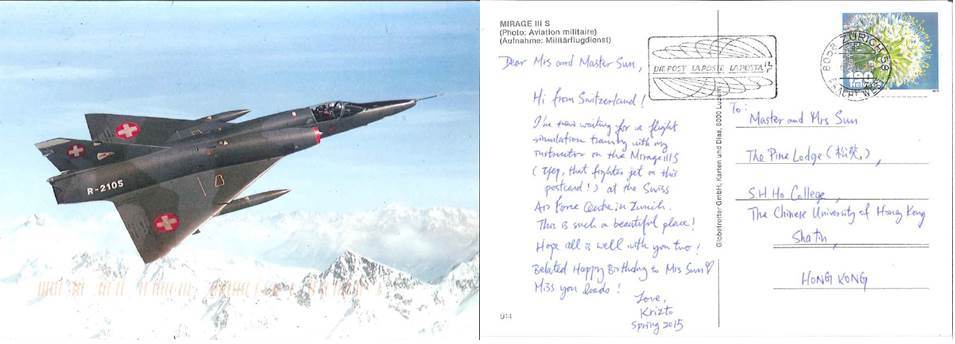 R-2105
MIRAGE III S
(Photo: Aviation militaire)
(Aufnahme: Militärflugdienst)
Dear Mrs and Master Sun,
Hi from Switzerland!
I'm now waiting for a flight
simulation training with my
instructor on the Mirage IIIS
(Yep, that fighter jet on this
postcard!) at the Swiss
Air Force Centre in Zurich.
This is such a beautiful place!
Hope all is well with you two!
Belated Happy Birthday to Mrs Sun
Miss you loads!
Love,
Krizto
Spring 2015
914
Globetrotter GmbH, Karten und Dias, 6000 Luzern
DIE POST LA POSTE LA POSTA
8058 ZÜRICH 58
180
To:
Master and Mrs Sun
The Pine Lodge
S.H. Ho College,
The Chinese University of Hong Kong
Shatin,
HONG KONG